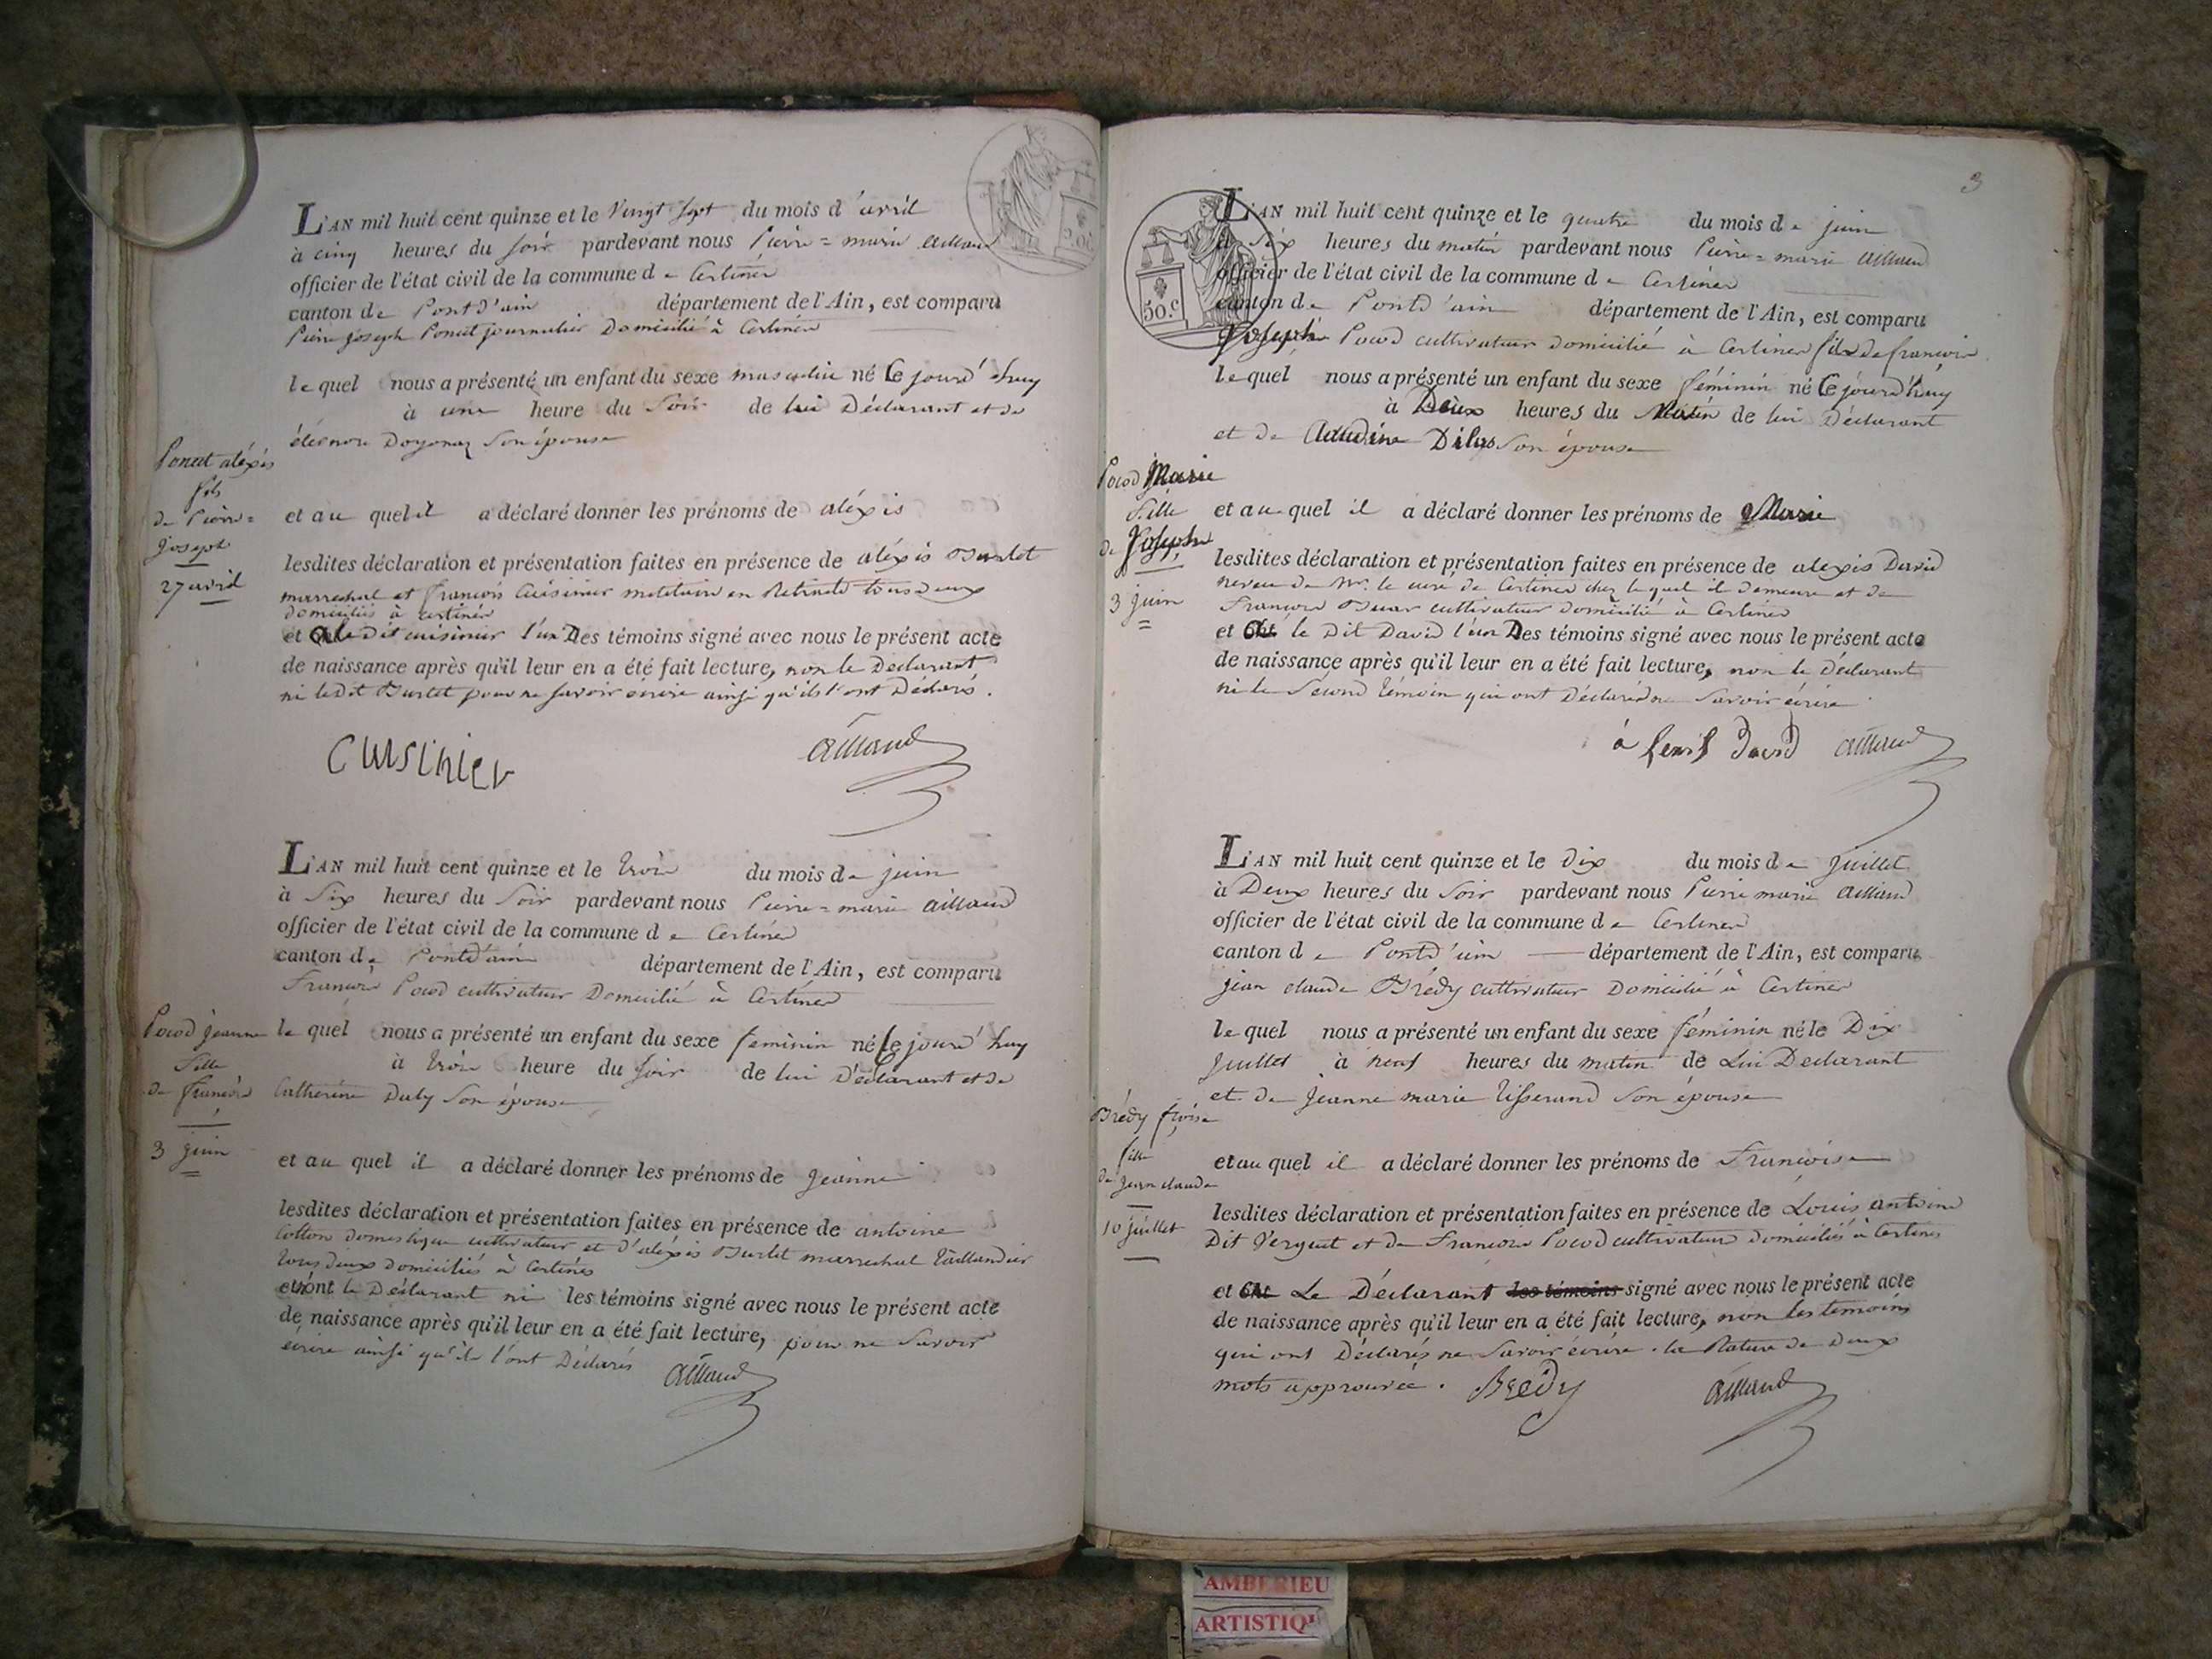 L'AN mil huit cent quinze et le Vingt Sept du mois d'avril
à cinq heures du Soir pardevant nous Pierre=marie aillaud
officier de l'état civil de la commune de Certines
canton de Pont d'ain département de l'Ain, est comparu
Pierre joseph Poncet journalier Domicilié à Certines
lequel nous a présenté un enfant du sexe masculin né Ce jourd'huy
à une heure du Soir de lui Déclarant et de
éléonore Doyonaz Son épouse
Poncet aléxis
fils
de Pierre=
joseph
27 avril
et au quel il a déclaré donner les prénoms de aléxis
lesdites déclaration et présentation faites en présence de aléxis Burlet
marrechal et françois Cuisinier militaire en Retraite tous deux
domiciliés à Certines
et a le Dit cuisinier l'un Des témoins signé avec nous le présent acte
de naissance après qu'il leur en a été fait lecture, non le Déclarant
ni le Dit Burlet pour ne Savoir écrire ainsi qu'ils l'ont Déclarés.
Cuisinier aillaud
L'AN mil huit cent quinze et le trois du mois de juin
à Six heures du Soir pardevant nous Pierre=marie aillaud
officier de l'état civil de la commune de Certines
canton de Pont d'ain département de l'Ain, est comparu
François Pocod cultivateur Domicilié à Certines
Pocod jeanne
fille
de françois
3 juin
le quel nous a présenté un enfant du sexe féminin né Ce jourd'huy
à trois heure du Soir de lui Déclarant et de
Catherine Duby Son épouse
et au quel il a déclaré donner les prénoms de Jeanne
lesdites déclaration et présentation faites en présence de antoine
Cotton domestique cultivateur et d'aléxis Burlet marrechal taillandier
tous deux domiciliés à Certines
et n'ont le Déclarant ni les témoins signé avec nous le présent acte
de naissance après qu'il leur en a été fait lecture, pour ne Savoir
écrire ainsi qu'ils l'ont Déclarés aillaud
3
L'AN mil huit cent quinze et le quatre du mois de juin
à Six heures du matin pardevant nous Pierre=marie aillaud
officier de l'état civil de la commune de Certines
canton de Pont d'ain département de l'Ain, est comparu
50.c
Joseph Pocod cultivateur domicilié à Certines fils de françois
lequel nous a présenté un enfant du sexe féminin né Ce jourd'huy
à Deux heures du Matin de lui Déclarant
et de Claudine Dilas Son épouse
Pocod Marie
fille
de Joseph
3 juin
et au quel il a déclaré donner les prénoms de Marie
lesdites déclaration et présentation faites en présence de alexis David
neveu de Mr. le curé de Certines chez le quel il demeure et de
François cultivateur domicilié à Certines
et le Dit David l'un Des témoins signé avec nous le présent acte
de naissance après qu'il leur en a été fait lecture, non le Déclarant
ni le Sécond témoin qui ont Déclarés ne Savoir écrire
David aillaud
L'AN mil huit cent quinze et le dix du mois de Juillet
à Deux heures du Soir pardevant nous Pierre marie aillaud
officier de l'état civil de la commune de Certines
canton de Pont d'ain département de l'Ain, est comparu
jean claude Brédy cultivateur Domicilié à Certines
lequel nous a présenté un enfant du sexe féminin né le Dix
Juillet à neuf heures du matin de Lui Déclarant
et de Jeanne marie tisserand Son épouse
Brédy fçoise
fille
de Jean claude
10 juillet
et au quel il a déclaré donner les prénoms de Françoise
lesdites déclaration et présentation faites en présence de Louis antoine
Dit Verguet et de François Pocod cultivateurs domiciliés à Certines
et Le Déclarant les témoins signé avec nous le présent acte
de naissance après qu'il leur en a été fait lecture, non les témoins
qui ont Déclarés ne Savoir écrire. la Rature de Deux
mots approuvée. Bredy aillaud
AMBERIEU
ARTISTIQ